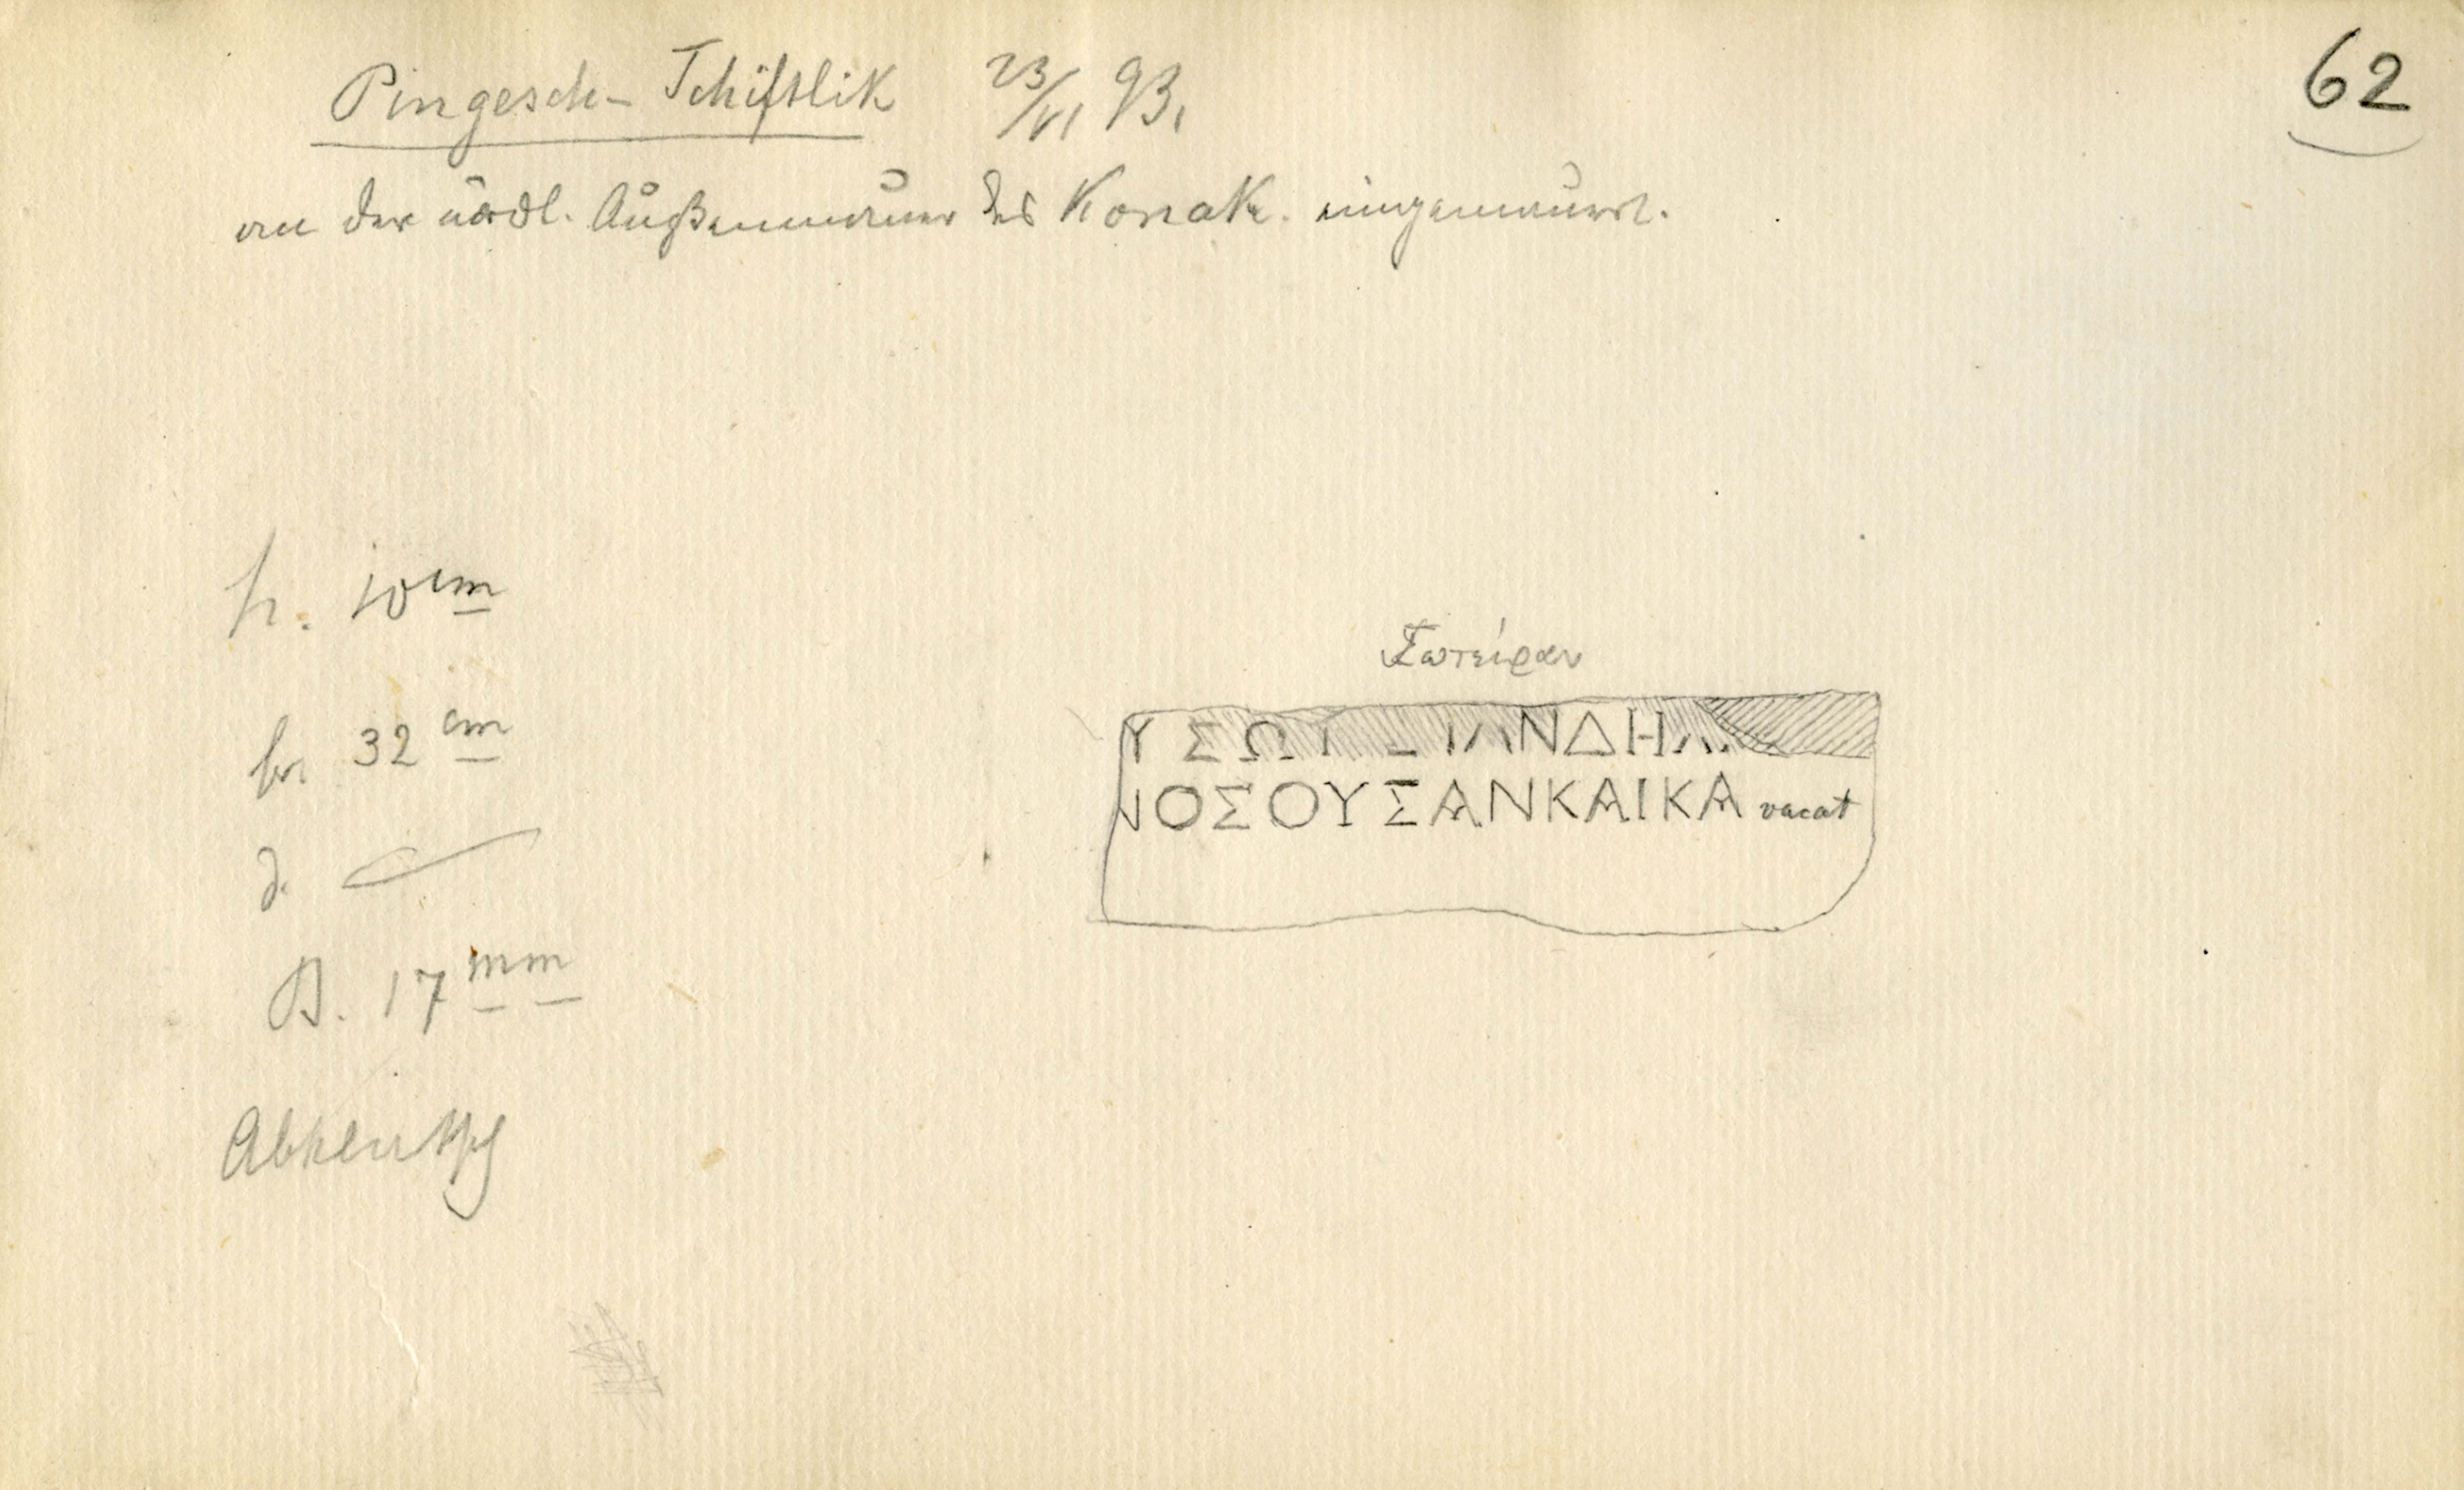 62
Pingesch-Tchiftlik 23/VI 93.
an der nördl. Außenmauer des Konak. eingemauert.
h. 10 cm
br. 32 cm
d.
B. 17 mm
Abklatsch
Σωτείραν
Υ ΣΩΤ Ε ΙΛΝΔΗΛ
ΝΟΣΟΥΣΑΝΚΑΙΚΑ vacat